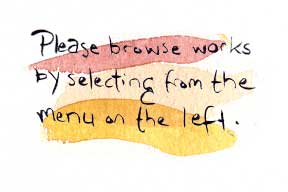 Please browse works
by selecting from the
menu on the left.